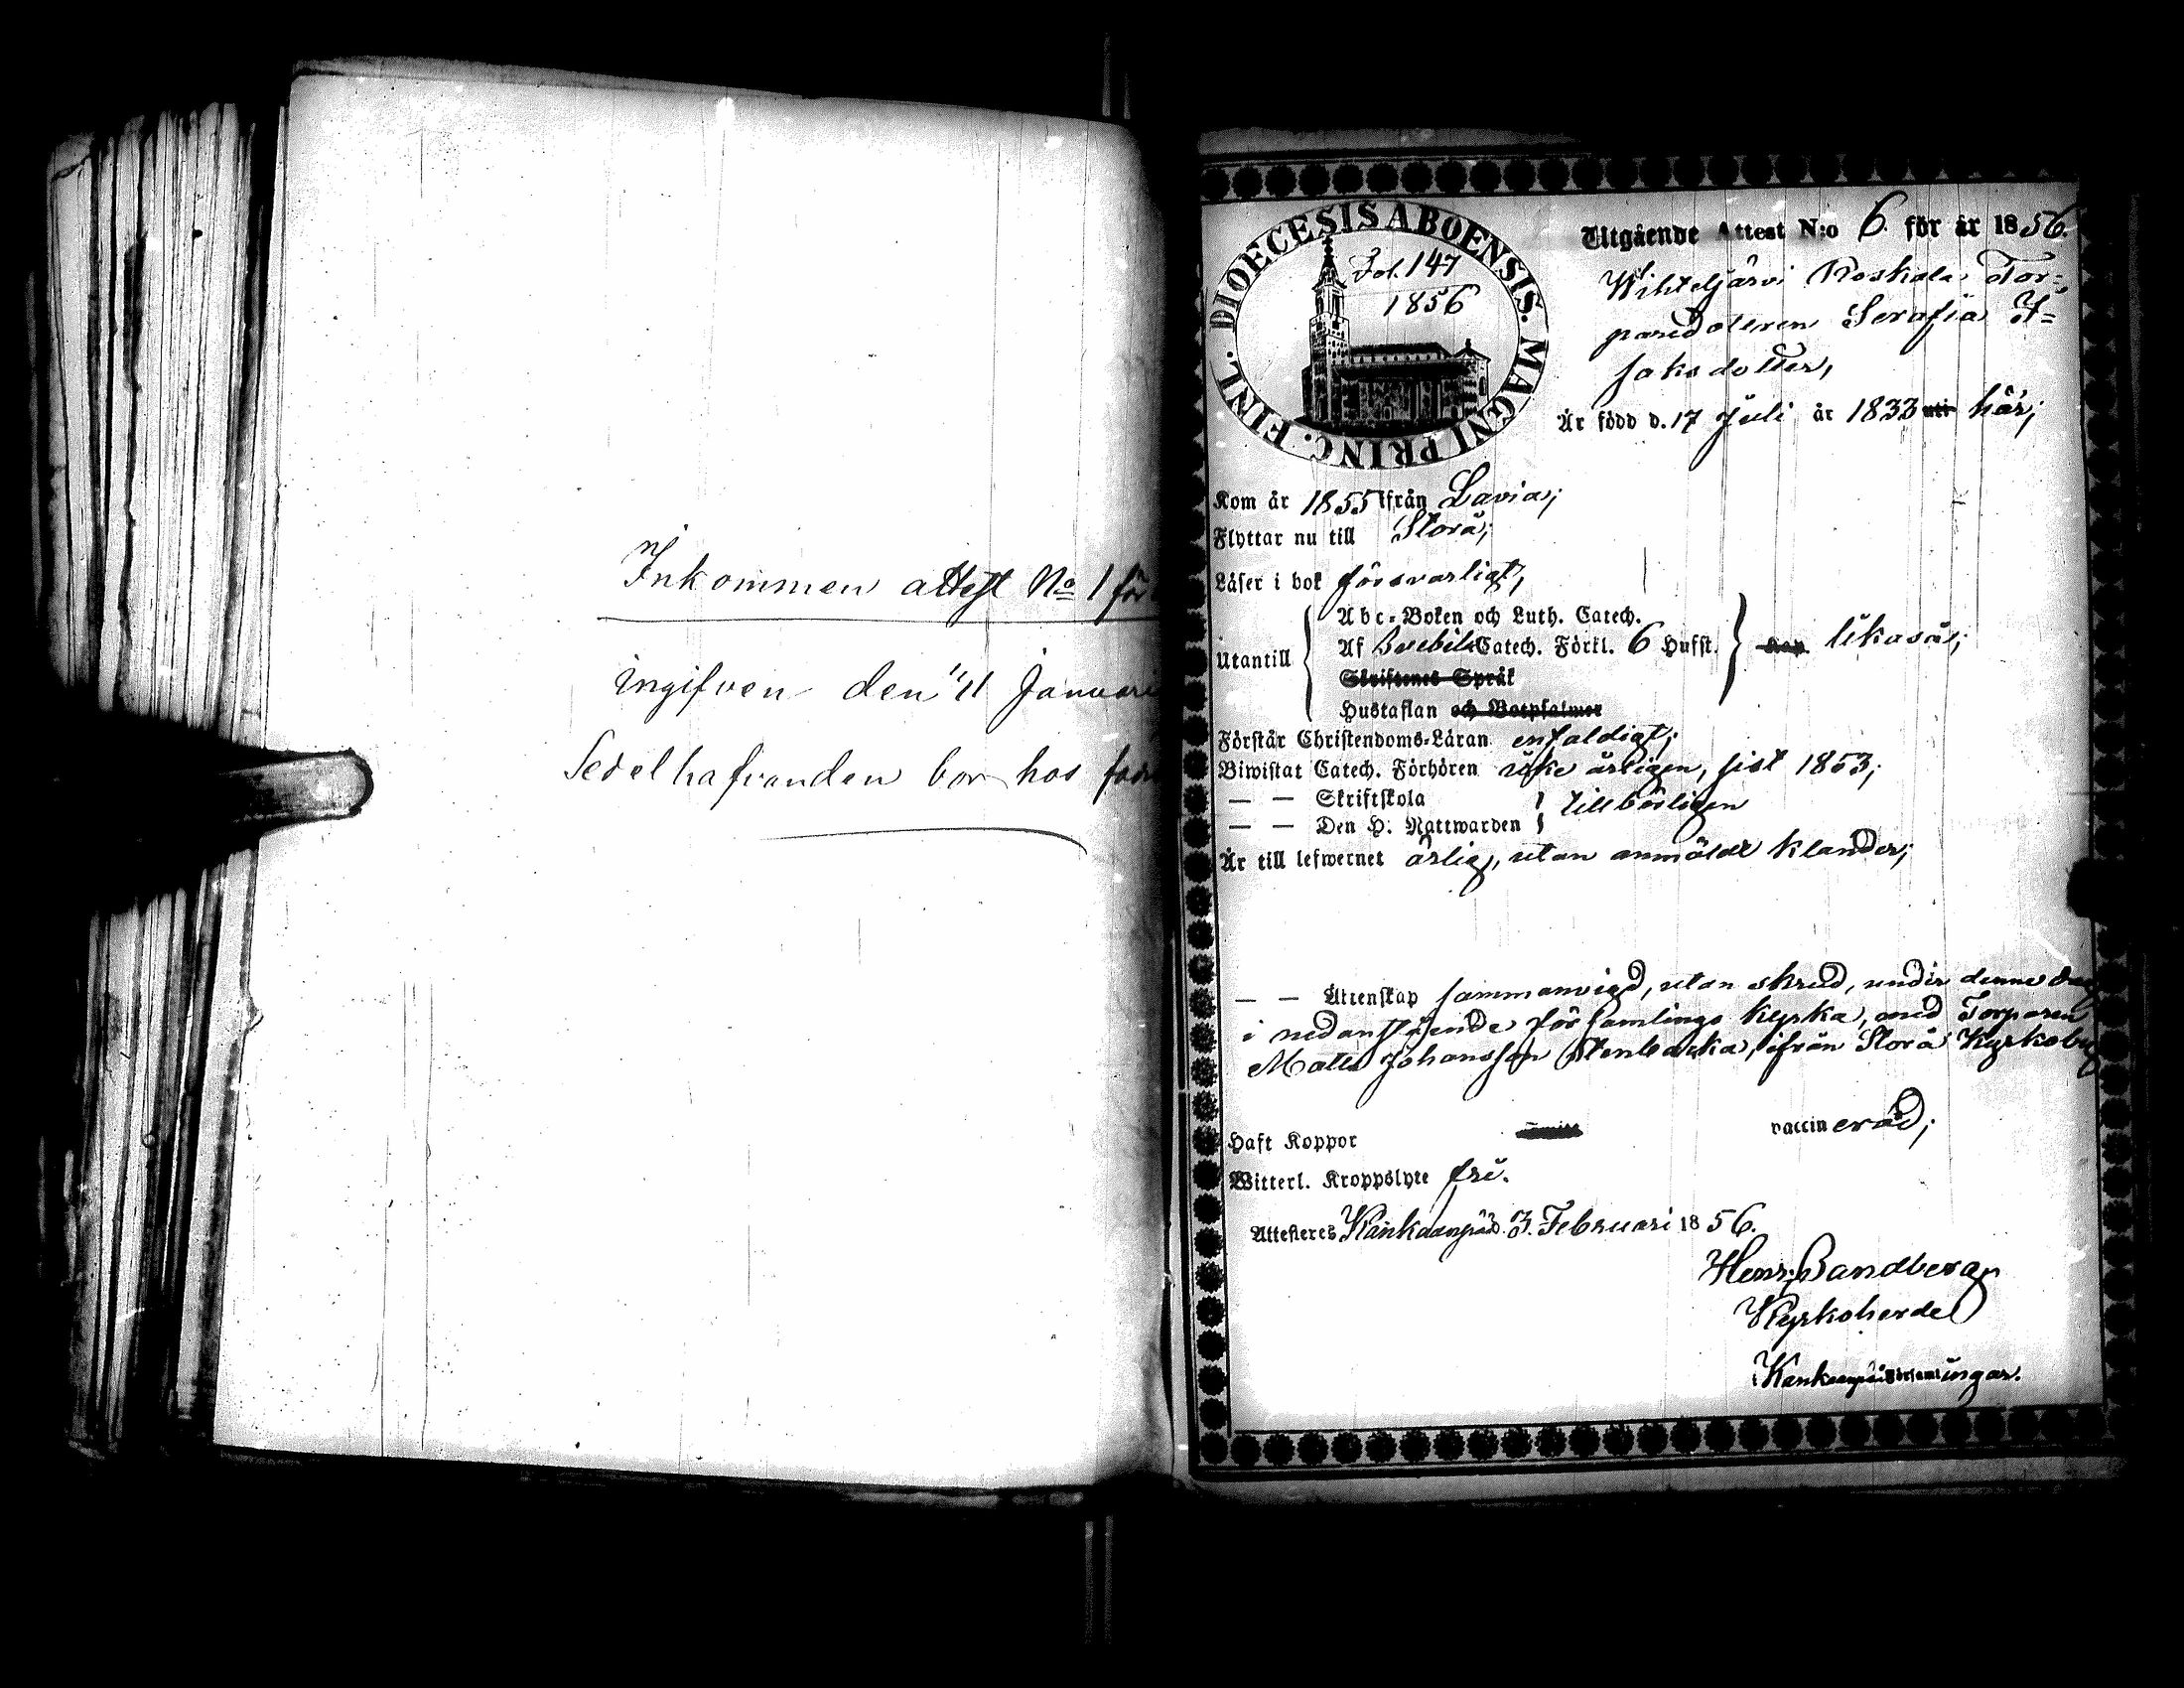 Inkommen attest No 1 för
ingifven den 11 Januari
Sedelhafvanden bor hos
DIOECESIS ABOENSIS. MAGNI PRINC. FINL.
Fol. 147
1856
Utgående Attest N:o 6. för år 1856.
Wihteljärvi Koskela Tor=
paredotteren Serafia I=
saksdotter,
Är född d. 17 Juli år 1833 uti här;
Kom år 1855 ifrån Lavia;
Flyttar nu till Storå;
Läser i bok försvarligt,
Utantill
Abc-Boken och Luth. Catech.
Af Svebil. Catech. Förkl. 6 Hufst. Kan likaså;
Skriftenes Språk
Hustaflan och Botpsalmer
Förstår Christendoms-Läran enfaldigt;
Biwistat Catech. Förhören årligen, sist 1853;
— — Skriftskola
— — Den H. Nattwarden tillbörligen
Är till lefwernet ärlig, utan anmäldt klander;
— — Äktenskap sammanvigd, utan skrud, under denne dag
i nedanstående församlings kyrka, med Torparen
Matts Johansson Stenbacka, ifrån Storå Kyrkoby
Haft Koppor vaccinerad;
Witterl. Kroppslyte fri.
Attesteres Kankaanpää d. 3. Februari 1856.
Henr. Sandberg
Kyrkoherde
Kankaanpää Församlingar.